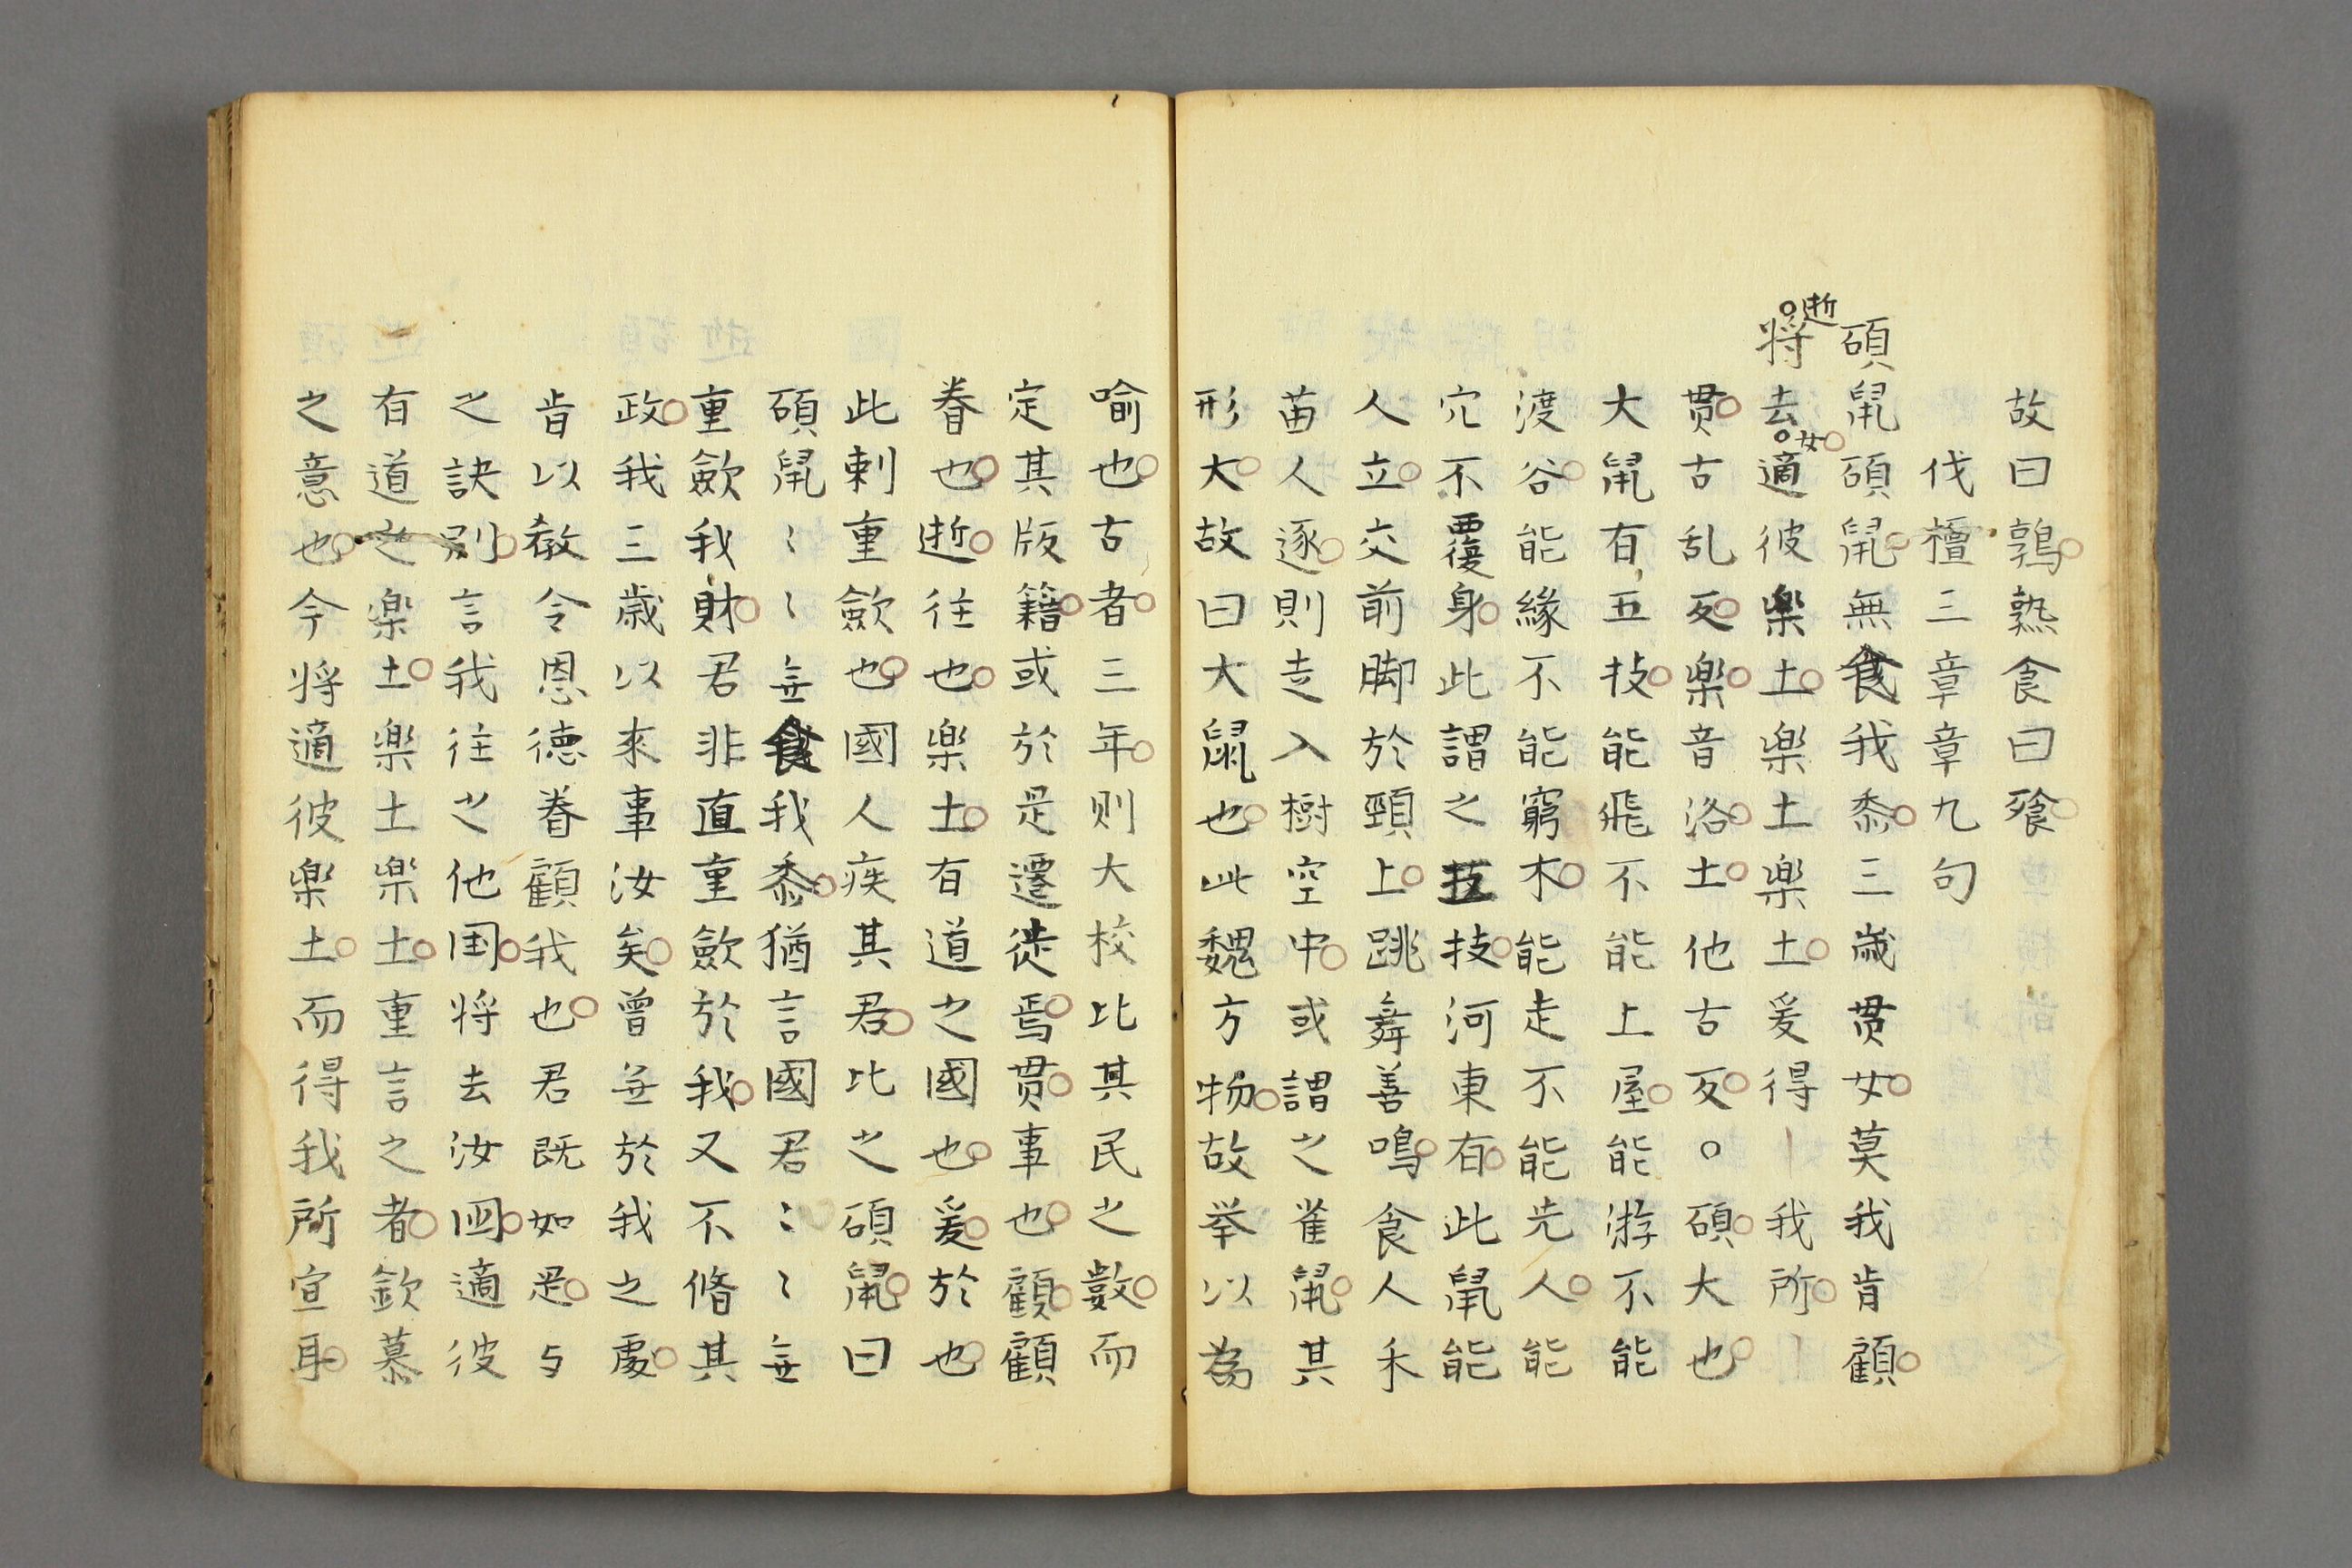 故曰鶉熟食曰飱
伐檀三章章九句
碩鼠碩鼠無食我黍三歲贯女莫我肯顧
逝将去女適彼楽土楽土楽土爰得我所
贯古乱反楽音洛土他古反。碩大也
大鼠有五技能飛不能上屋能游不能
渡谷能緣不能窮木能走不能先人能
穴不覆身此謂之技河東有此鼠能
人立交前脚於頸上跳舞善鳴食人禾
苗人逐則走入樹空中或謂之雀鼠其
形大故曰大鼠也此魏方物故挙以為
喻也古者三年则大校比其民之數而
定其版籍或於是遷徙焉贯事也顧顧
眷也逝往也楽土有道之國也爰於也
此刺重斂也國人疾其君比之碩鼠曰
碩鼠〻〻無食我黍猶言國君〻〻無
重斂我財君非直重斂於我又不脩其
政我三歲以来事汝矣曾無於我之處
肯以教令恩德眷顧我也君既如是与
之訣別言我往之他国将去汝国適彼
有道之楽土楽土楽土重言之者欽慕
之意也今将適彼楽土而得我所宣耳